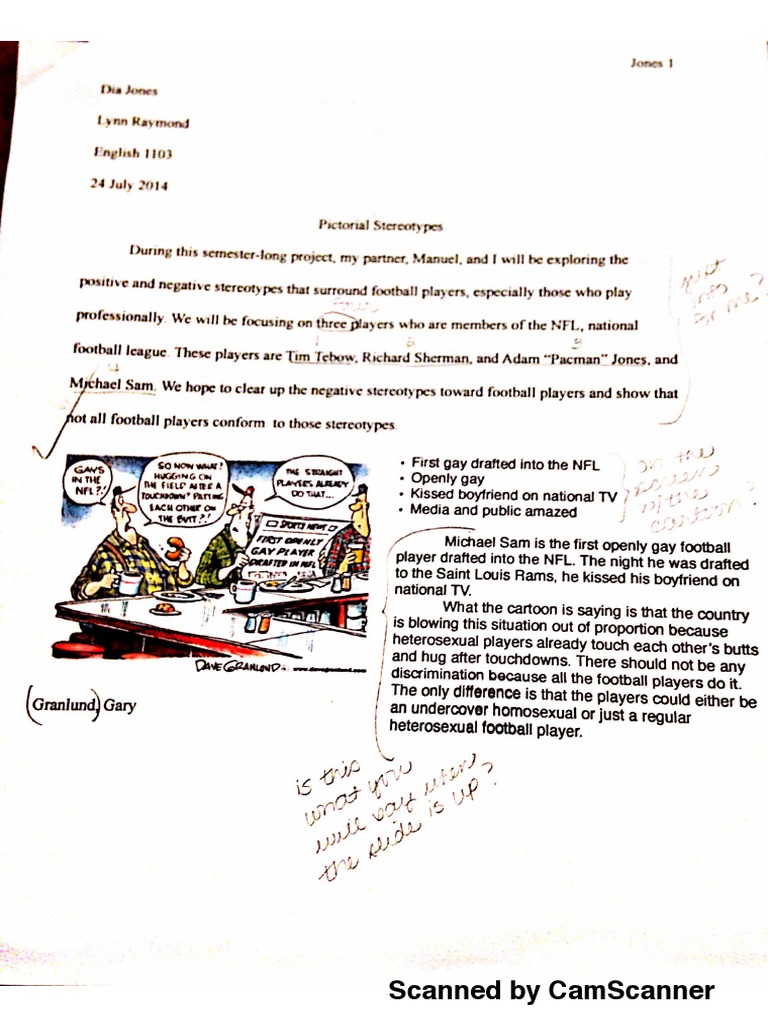 Jones 1
Dia Jones
Lynn Raymond
English 1103
24 July 2014
Pictorial Stereotypes
During this semester-long project, my partner, Manuel, and I will be exploring the
positive and negative stereotypes that surround football players, especially those who play
professionally. We will be focusing on three players who are members of the NFL, national
football league. These players are Tim Tebow, Richard Sherman, and Adam “Pacman” Jones, and
Michael Sam. We hope to clear up the negative stereotypes toward football players and show that
not all football players conform to those stereotypes.
just
info
for me?
GAYS
IN THE
NFL?!
SO NOW WHAT?
HUGGING ON
THE FIELD AFTER A
TOUCHDOWN? PATTING
EACH OTHER ON
THE BUTT?!
THE STRAIGHT
PLAYERS ALREADY
DO THAT...
SPORTS NEWS
FIRST OPENLY
GAY PLAYER
DRAFTED IN NFL
DAVE GRANLUND © www.davegranlund.com
(Granlund) Gary
• First gay drafted into the NFL
• Openly gay
• Kissed boyfriend on national TV
• Media and public amazed
on the
screen
w/the
cartoon?
Michael Sam is the first openly gay football
player drafted into the NFL. The night he was drafted
to the Saint Louis Rams, he kissed his boyfriend on
national TV.
What the cartoon is saying is that the country
is blowing this situation out of proportion because
heterosexual players already touch each other's butts
and hug after touchdowns. There should not be any
discrimination because all the football players do it.
The only difference is that the players could either be
an undercover homosexual or just a regular
heterosexual football player.
is this
what you
will say when
the slide is up?
Scanned by CamScanner